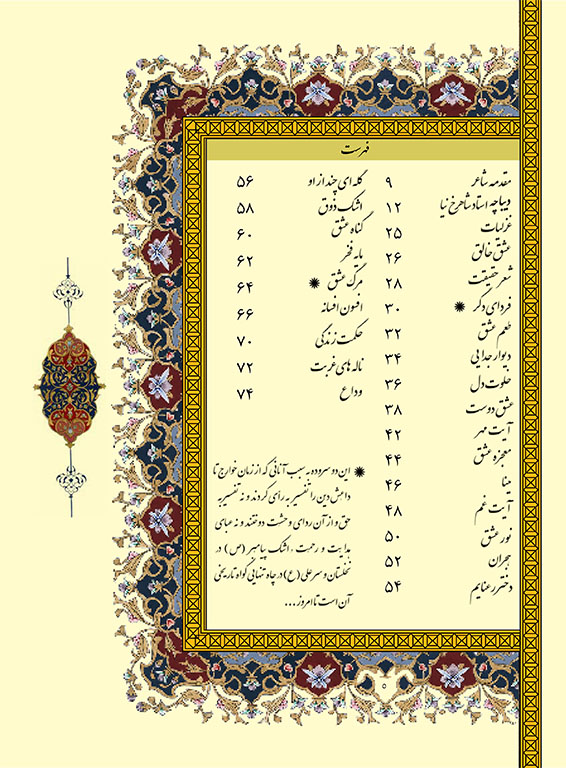 فهرست
مقدمه شاعر ۹
دیباچه استاد شاهرخ نیا ۱۲
غزلیات ۲۵
عشق خالق ۲۶
شعر حقیقت ۲۸
فردای دگر * ۳۰
طعم عشق ۳۲
دیوار جدایی ۳۴
خلوت دل ۳۶
عشق دوست ۳۸
آیت مهر ۴۲
معجزه عشق ۴۴
مینا ۴۶
آیت غم ۴۸
نور عشق ۵۰
هجران ۵۲
دختر رعنایم ۵۴
گله ای چند از او ۵۶
اشک ذوق ۵۸
گناه عشق ۶۰
مایه فخر ۶۲
مرگ عشق * ۶۴
افسون افسانه ۶۶
حکمت زندگی ۷۰
ناله های غربت ۷۲
وداع ۷۴
* این دو سروده به سبب آنانی که از زمان خوارج تا
داعش دین را تفسیر به رأی کردند و نه تفسیر به
حق و از آن ردای وحشت دوختند و نه عبای
هدایت و رحمت ، اشک پیامبر (ص) در
نخلستان و سر علی (ع) در چاه تنهایی گواه تاریخی
آن است تا امروز ...